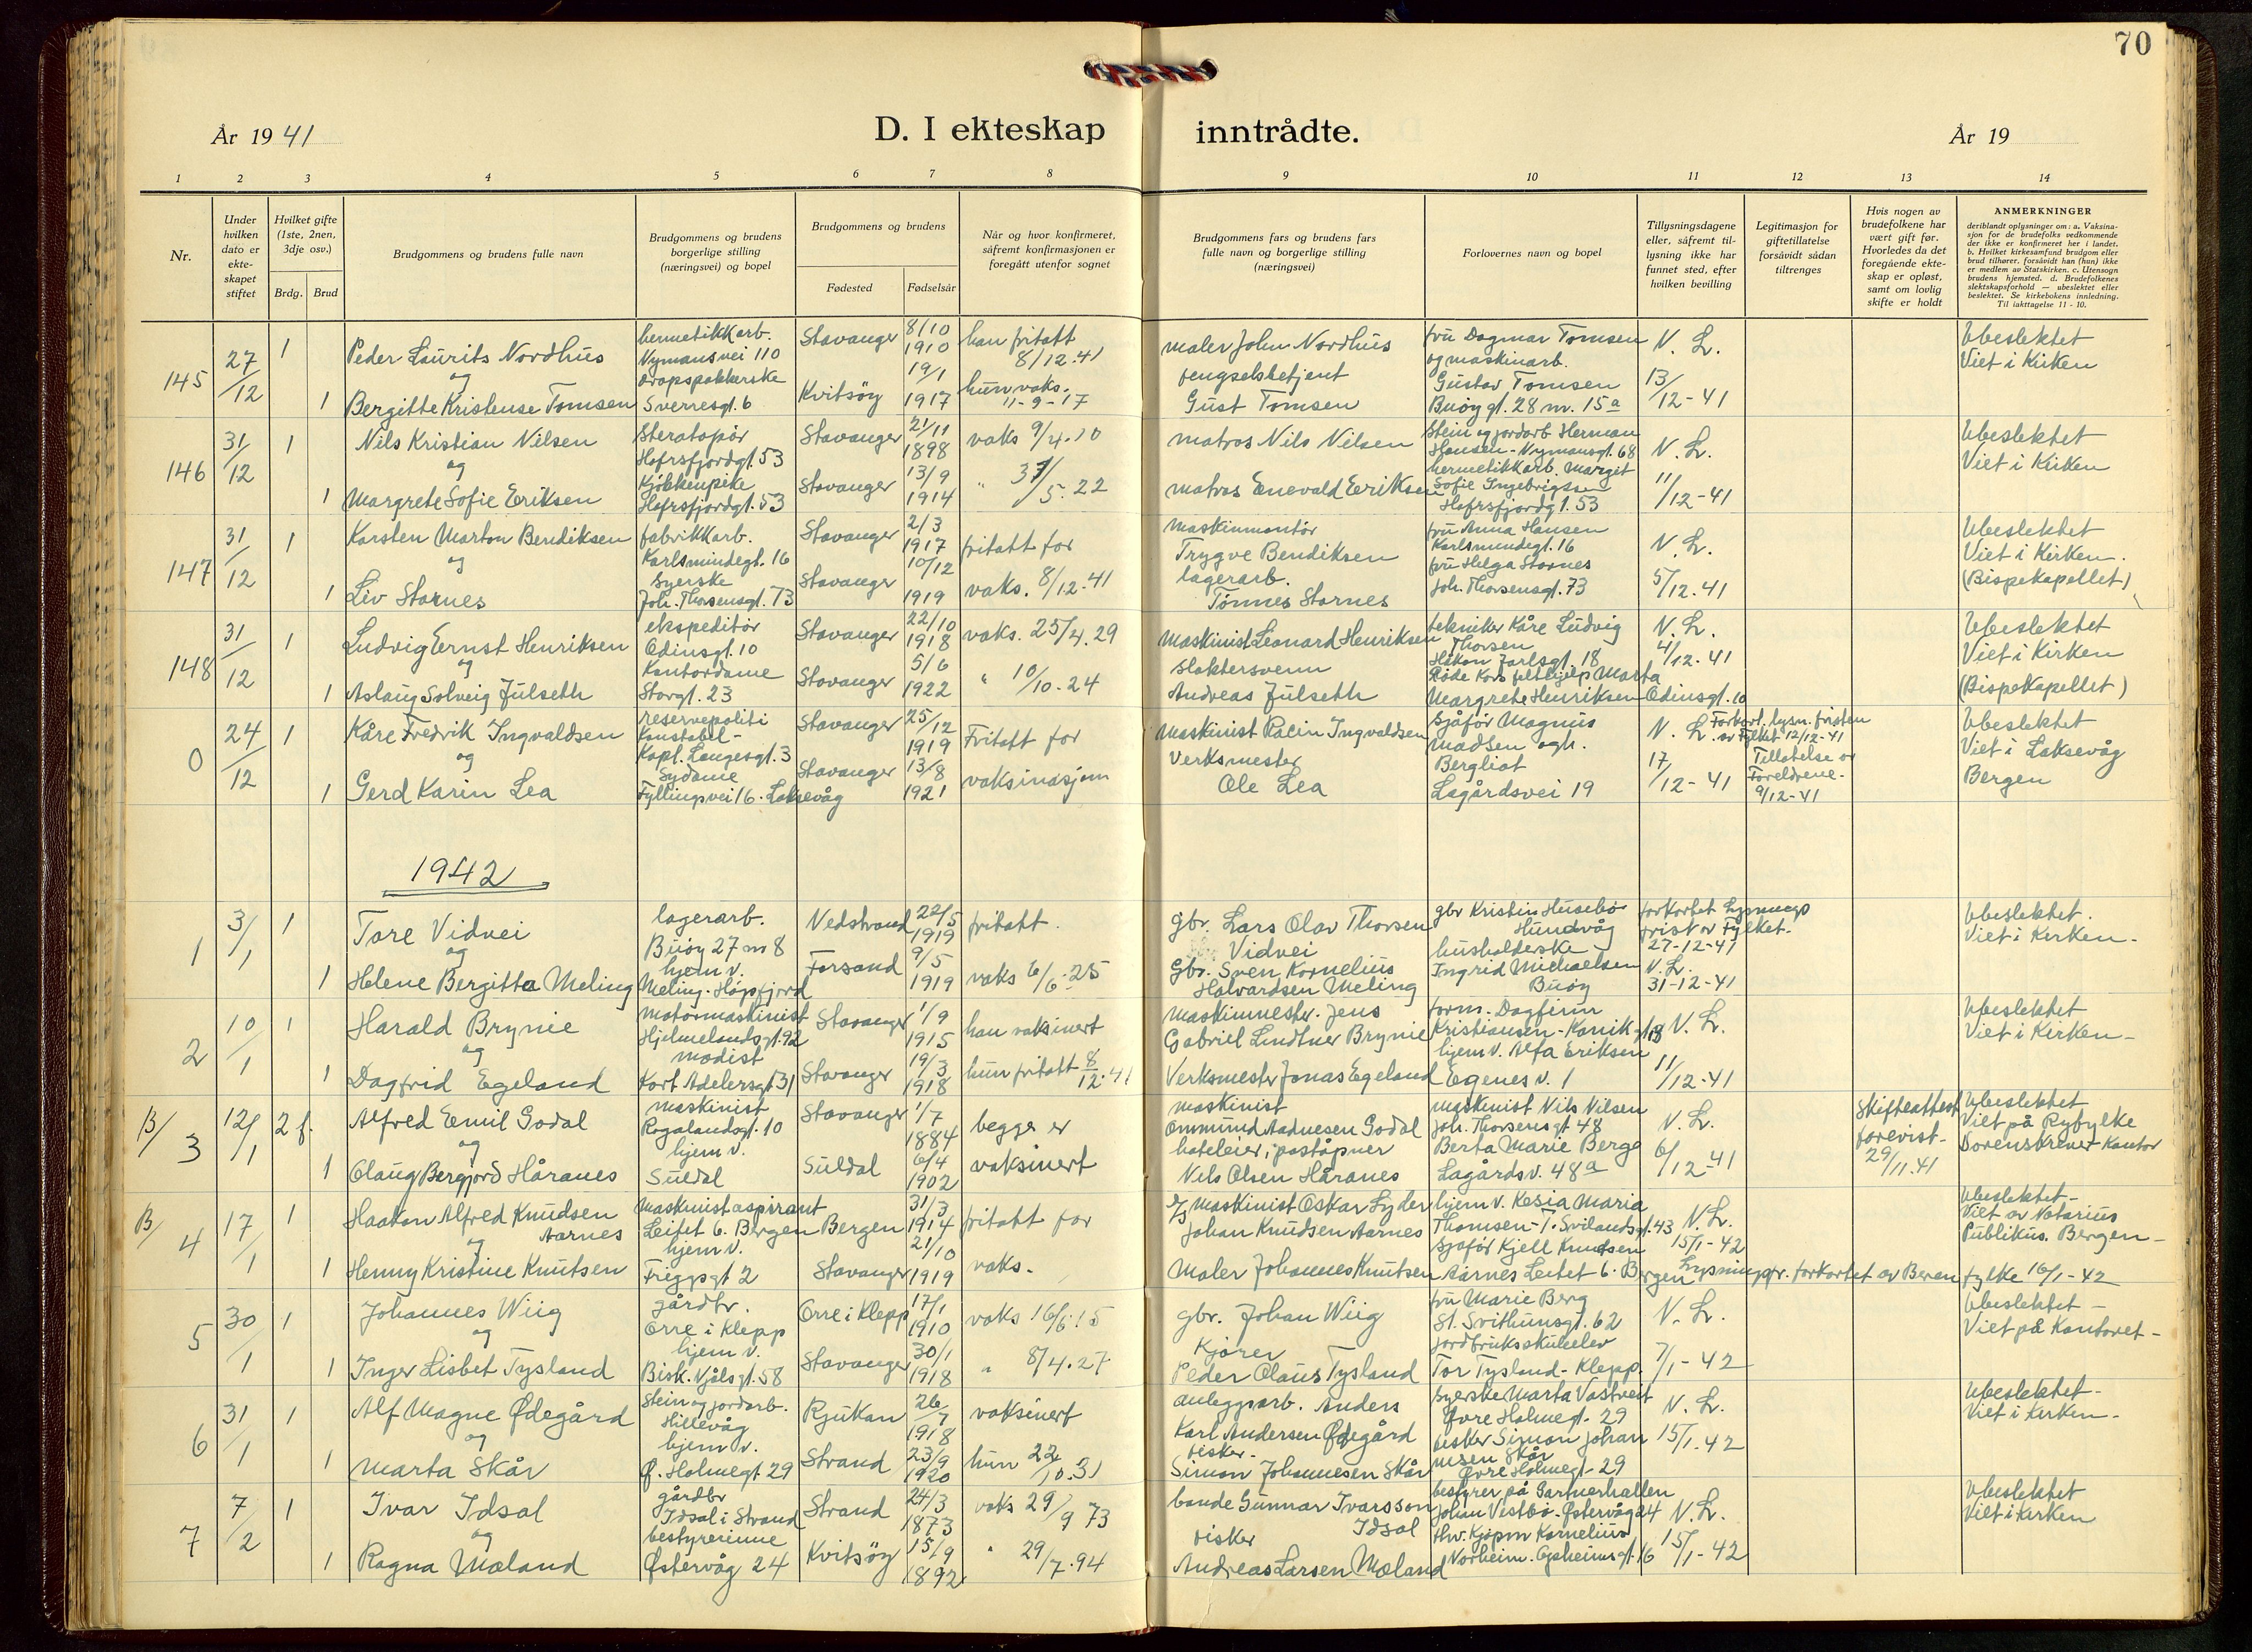 70
År 1941
D. I ekteskap inntrådte.
År 19
1 2 3 4 5 6 7 8 9 10 11 12 13 14
Nr.
Under hvilken dato er ekteskapet stiftet
Hvilket gifte (1ste, 2nen, 3dje osv.)
Brdg. Brud
Brudgommens og brudens fulle navn
Brudgommens og brudens borgerlige stilling (næringsvei) og bopel
Brudgommens og brudens
Fødested Fødselsår
Når og hvor konfirmeret, såfremt konfirmasjonen er foregått utenfor sognet
Brudgommens fars og brudens fars fulle navn og borgerlige stilling (næringsvei)
Forlovernes navn og bopel
Tillysningsdagene eller, såfremt tillysning ikke har funnet sted, efter hvilken bevilling
Legitimasjon for giftetillatelse forsåvidt sådan tiltrenges
Hvis nogen av brudefolkene har vært gift før. Hvorledes da det foregående ekteskap er opløst, samt om lovlig skifte er holdt
ANMERKNINGER
deriblandt oplysninger om: a. Vaksinasjon for de brudefolks vedkommende der ikke er konfirmeret her i landet. b. Hvilket kirkesamfund brudgom eller brud tilhører, forsåvidt han (hun) ikke er medlem av Statskirken. c. Utensogn brudens hjemsted. d. Brudefolkenes slektskapsforhold — ubeslektet eller beslektet. Se kirkebokens innledning. Til iakttagelse 11 - 10.
145 27/12 1 Peder Laurits Nordhus hermetikkarb. Nymansvei 110 Stavanger 8/10 1910 han fritatt 8/12.41 maler John Nordhus fru Dagmar Tomsen og maskinarb. N. L. Ubeslektet Viet i Kirken
og
1 Bergitte Kristense Tomsen dropspakkerske Sverresgt. 6 Kvitsøy 19/1 1917 hun vaks. 11-9-17 fengselsbetjent Gust Tomsen Gustav Tomsen Buøy gt. 28 m. 15a 13/12-41
146 31/12 1 Nils Kristian Nilsen Hafrsfjordgt. 53 Stavanger 21/11 1898 vaks 9/4.10 matros Nils Nilsen Stein og jordarb Herman Hansen - Nymansgt. 68 N. L. Ubeslektet Viet i Kirken
og
1 Margrete Sofie Eriksen Kjøkkenpike Hafrsfjordgt. 53 Stavanger 13/9 1914 " 31/5.22 matros Enevald Eriksen hermetikkarb. Marget Sofie Ingebrigtsen Hafrsfjordgt. 53 11/12-41
147 31/12 1 Karsten Marton Bendiksen fabrikkarb. Karlsmindegt. 16 Stavanger 2/3 1917 fritatt for maskinmontør Trygve Bendiksen fru Anna Hansen Karlsmindegt. 16 N. L. Ubeslektet Viet i Kirken.
og
1 Liv Starnes syerske Joh. Thorsensgt. 73 Stavanger 10/12 1919 vaks. 8/12.41 lagerarb. Tønnes Starnes fru Helga Starnes Joh. Thorsensgt. 73 5/12.41 (Bispekapellet)
148 31/12 1 Ludvig Ernst Henriksen ekspeditør Odinsgt. 10 Stavanger 22/10 1918 vaks. 25/4.29 maskinist Leonard Henriksen tekniker Kåre Ludvig Thorsen Håkon Jarlsgt. 18 N. L. 4/12.41 Ubeslektet Viet i Kirken
og
1 Aslaug Solveig Julseth Kontordame Storgt. 23 Stavanger 5/6 1922 " 10/10.24 slaktersvenn Andreas Julseth Røde Kors felthjelp Marta Margrete Henriksen Odinsgt. 10 (Bispekapellet)
0 24/12 1 Kåre Fredrik Ingvaldsen reservepoliti Konstabel - Kapt. Langesgt. 3 Stavanger 25/12 1919 Fritatt for maskinist Racin Ingvaldsen sjåfør Magnus Madsen ogh. N. L. Forkort. lysn. fristen av Fylket 12/12-41 Ubeslektet Viet i Laksevåg
og
1 Gerd Karin Lea Sydame Fyllingsvei 16. Laksevåg Stavanger 13/8 1921 vaksinasjon Verksmester Ole Lea Bergliot Lagårdsvei 19 17/12-41 Tillatelse av Foreldrene. 9/12-41 Bergen
1942
1 3/1 1 Tore Vidvei lagerarb. Buøy 27 m 8 Nedstrand 22/5 1919 fritatt. gbr. Lars Olav Thorsen Vidvei gbr Kristin Husebø Hundvåg forkortet Lysnings frist av Fylket. 27-12-41 Ubeslektet. Viet i Kirken.
og
1 Helene Bergitta Meling hjem v. Meling. Høgsfjord Forsand 9/5 1919 vaks 6/6.25 Gbr. Sven Kornelius Halvardsen Meling husholderske Ingrid Michaelsen Buøy N. L. 31-12-41
2 10/1 1 Harald Brynie motormaskinist Hjelmelandsgt. 92 Stavanger 1/9 1915 han vaksinert maskinmester. Jens Gabriel Lindtner Brynie form. Dagfinn Kristiansen - Kanikgt. 18 N. L. Ubeslektet Viet i Kirken -
og
1 Dagfrid Egeland modist Kort Adelersgt. 31 Stavanger 19/3 1918 hun fritatt 8/12.41 Verksmester Jonas Egeland hjem v. Alfa Eriksen Egenes v. 1 11/12.41
B/ 3 12/1 2 f. Alfred Emil Godal maskinist Rogalandsgt. 10 Stavanger 1/7 1884 begge er maskinist Ommund Aadnesen Godal maskinist Nils Nilsen Joh. Thorsensgt 48 N. L. Skifteattest forevist - 29/11.41 Ubeslektet Viet på Ryfylke Sorenskriver Kontor
og
1 Olaug Bergjord Håranes hjem v. Suldal Suldal 6/4 1902 vaksinert hoteleier, poståpner Nils Olsen Håranes Berta Marie Berge Lagårdsv. 48a 6/12-41
B/ 4 17/1 1 Haakon Alfred Knudsen Aarnes Maskinistaspirant Leitet 6. Bergen Bergen 31/3 1914 fritatt for maskinist Oskar Lyder Johan Knudsen Aarnes hjem v. Kesia Maria Thomsen - T. Svilandsgt. 43 N. L. 15/1-42 Ubeslektet - Viet av Notarius Publikus. Bergen -
og
1 Henny Kristine Knutsen hjem v. Friggsgt 2 Stavanger 21/10 1919 vaks. Maler Johannes Knutsen sjåfør Kjell Knudsen Aarnes Leitet 6. Bergen Lysningsfr. forkortet av Bergen fylke 16/1-42
5 30/1 1 Johannes Wiig gårdbr. Orre i Klepp Orre i Klepp 17/1 1910 vaks 16/6.15 gbr. Johan Wiig fru Marie Berg St. Svithunsgt. 62 N. L. Ubeslektet - Viet på Kontoret -
og
1 Inger Lisbet Tysland hjem v. Bisk. Njålsgt. 58 Stavanger 30/1 1918 " 8/4.27 Kjører Peder Olaus Tysland jordbruksskuleelev Tor Tysland - Klepp. 7/1-42
6 31/1 1 Alf Magne Ødegård Stein og jordarb. Hillevåg Rjukan 26/7 1918 vaksinert anleggsarb. Anders Karl Andersen Ødegård syerske Marta Vastveit Øvre Holmegt. 29 N. L. Ubeslektet - Viet i Kirken -
og
1 Marta Skår hjem v. Ø. Holmegt 29 Strand 23/9 1920 hun 22/10.31 fisker. Simon Johannesen Skår fisker Simon Johannesen Skår Øvre Holmegt - 29 15/1.42
7 7/2 1 Ivar Idsal gårdbr Idsal i Strand Strand 24/3 1873 vaks 29/9 73 bonde Gunnar Ivarsson Idsal bestyrer på Gartnerhallen Johan Vestbø - Østervåg 24 N. L. Ubeslektet Viet i Kirken
og
1 Ragna Mæland bestyrerinne Østervåg 24 Kvitsøy 15/9 1892 " 29/7.94 fisker Andreas Larsen Mæland Hv. Kjøpm Kornelius Norheim. 16 15/1-42